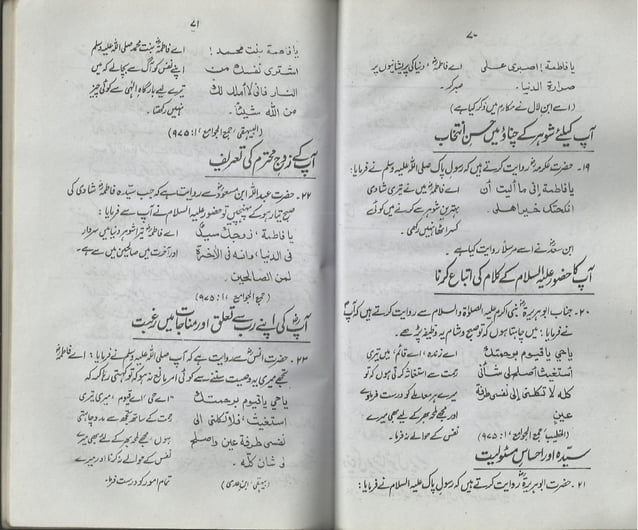 ۷۰
یا فاطمة! اصبری علی
صرارة الدنیا۔
اے فاطمہؓ، دنیا کی پریشانیوں پر
صبر کر۔
(اسے ابن لال نے مکارم میں ذکر کیا ہے)
آپ کیلئے شوہر کے چناؤ میں حسن انتخاب
۱۹۔ حضرت عکرمہؓ روایت کرتے ہیں کہ رسول پاک صلی اللہ علیہ وسلم نے فرمایا:
یا فاطمة إنی ما ألیت أن
انکحتک خیر اھلی۔
اے فاطمہؓ میں نے تیری شادی
بہترین شوہر سے کرنے میں کوئی
کسر اٹھا نہیں رکھی۔
ابن سعدؒ نے اسے مرسلاً روایت کیا ہے۔
آپ کا حضور علیہ السلام کے کلام کی اتباع کرنا
۲۰۔ جناب ابو ہریرۃؓ نبی اکرم علیہ الصلوٰۃ والسلام سے روایت کرتے ہیں کہ آپؐ
نے فرمایا: میں چاہتا ہوں کہ تو صبح و شام یہ وظیفہ پڑھے۔
یا حی یا قیوم برحمتک
استغیث اصلح لی شأنی
کله لا تکلنی إلی نفسی طرفة
عین
اے زندہ، اے قائم، میں تیری
رحمت سے استغاثہ کرتی ہوں کہ تو
میرے ہر معاملے کو درست فرما دے
اور مجھے لمحہ بھر کے لیے بھی میرے
نفس کے حوالے نہ فرما۔
(الخطیب، جمع الجوامع ۱: ۹۷۵)
سیدہ اور احساس مسئولیت
۲۱۔ حضرت ابو ہریرۃؓ روایت کرتے ہیں کہ رسول پاک علیہ السلام نے فرمایا:
۷۱
یا فاطمة بنت محمد!
اشتری نفسک من
النار فانی لا املک لک
من الله شیئاً۔
اے فاطمہؓ بنت محمد صلی اللہ علیہ وسلم
اپنے نفس کو آگ سے بچا لے کہ میں
تیرے لیے بارگاہ الٰہی سے کوئی چیز
نہیں رکھتا۔
(البیہقی، جمع الجوامع ۱: ۹۷۵)
آپ کے زوج محترم کی تعریف
۲۲۔ حضرت عبداللہ ابن مسعودؓ سے روایت ہے کہ جب سیدہ فاطمہؓ شادی کی
صبح تیار ہو کر پہنچیں تو حضور علیہ السلام نے آپ سے فرمایا۔
یا فاطمة، زوجک سید
فی الدنیا، وانه فی الآخرة
لمن الصالحین۔
اے فاطمہؓ تیرا شوہر دنیا میں سردار
اور آخرت میں صالحین میں سے ہے۔
(جمع الجوامع ۱: ۹۷۵)
آپؓ کی اپنے رب سے تعلق اور مناجات میں رغبت
۲۳۔ حضرت انسؓ سے روایت ہے کہ آپ صلی اللہ علیہ وسلم نے فرمایا: اے فاطمہؓ
تجھے میری یہ وصیت سننے سے کوئی امر مانع نہ ہو کہ تو کہتی رہا کر کہ
یا حی یا قیوم برحمتک
استغیث، فلا تکلنی الی
نفسی طرفة عین واصلح
لی شأنی کله۔
"اے حی، اے قیوم، میری تیری
رحمت کے ساتھ تجھ سے مدد چاہتی
ہوں، مجھے لمحہ بھر کے لیے بھی میرے
نفس کے حوالے نہ کرنا اور میرے
تمام امور کو درست فرما۔
(بیہقی، ابن عدی)